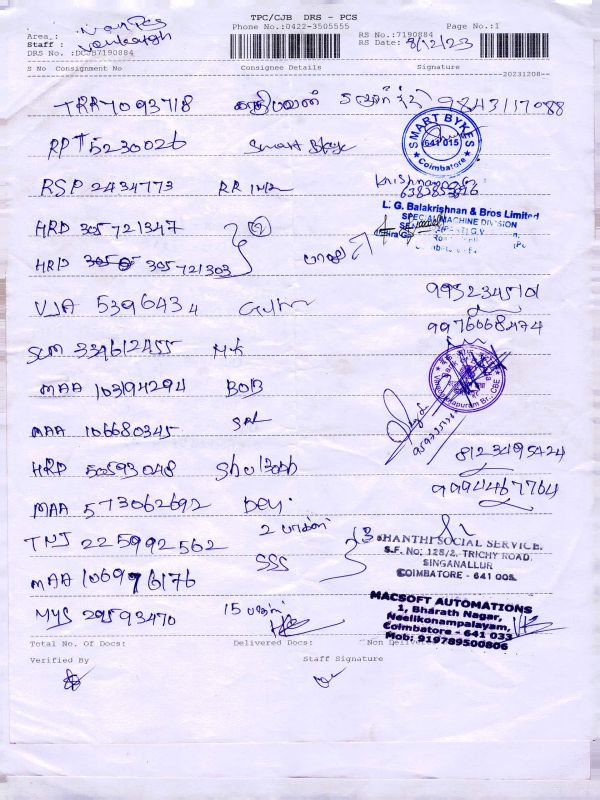 TPC/CJB DRS - PCS
Phone No.:0422-3505555 Page No.:1
Area : Non PCS
Staff :
RS No.:7190884
RS Date: 8/12/23
DRS No. :DCJB7190884
S No Consignment No Consignee Details Signature
20231208
TRR 7093718 கதிரவன் 9843117088
RPT 5230026 Smart Bykes
SMART BYKES 641 015 Coimbatore
RSP 2434773 RR INR Krishna
L. G. Balakrishnan & Bros Limited
SPECIAL MACHINE DIVISION
HRD 305721347 2
HRD 305721303 பாலு
VJA 5396434 9952345101
SCM 339612455 M.K 9976068474
MAA 103194294 BOB
MAA 106680345
HRD 50593048 8123495424
MAA 573062692 Dev. 9994467764
TNJ 225992562 2 பாக்ஸ் 3
SHANTHI SOCIAL SERVICE.
S.F. No; 128/2, TRICHY ROAD,
SINGANALLUR
COIMBATORE - 641 005.
MAA 106976176 SSS
MYS 29593470 15 பாக்ஸ்
MACSOFT AUTOMATIONS
1, Bharath Nagar,
Neelikonampalayam,
Coimbatore - 641 033
Mob: 919789500806
Total No. Of Docs: Delivered Docs: Non
Verified By Staff Signature